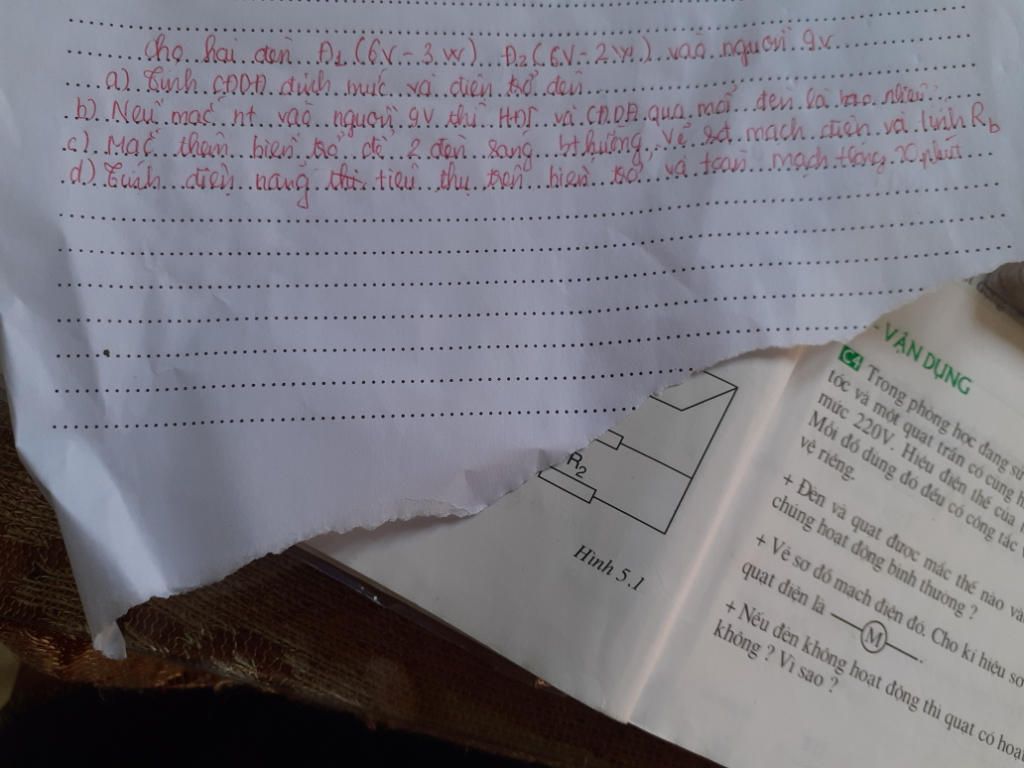 Cho hai đèn Đ1 (6V - 3W) Đ2 (6V - 2W) vào nguồn 9V
a) Tính CĐDĐ định mức và điện trở đèn
b) Nếu mắc nt vào nguồn 9V thì HĐT và CĐDĐ qua mỗi đèn là bao nhiêu?
c) Mắc thêm biến trở để 2 đèn sáng bt hường, Vẽ sđ mạch điện và tính Rb
d) Tính điện năng thi tiêu thụ trên biến trở và toàn mạch trong 20 phút
R2
Hình 5.1
- VẬN DỤNG
C4 Trong phòng học đang sử
tóc và một quạt trần có cùng h
mức 220V. Hiệu điện thế của
Mỗi đồ dùng đó đều có công tắc
vệ riêng.
+ Đèn và quạt được mắc thế nào và
chúng hoạt động bình thường ?
+ Vẽ sơ đồ mạch điện đó. Cho kí hiệu sơ
quạt điện là M
+ Nếu đèn không hoạt động thì quạt có hoạt
không ? Vì sao ?